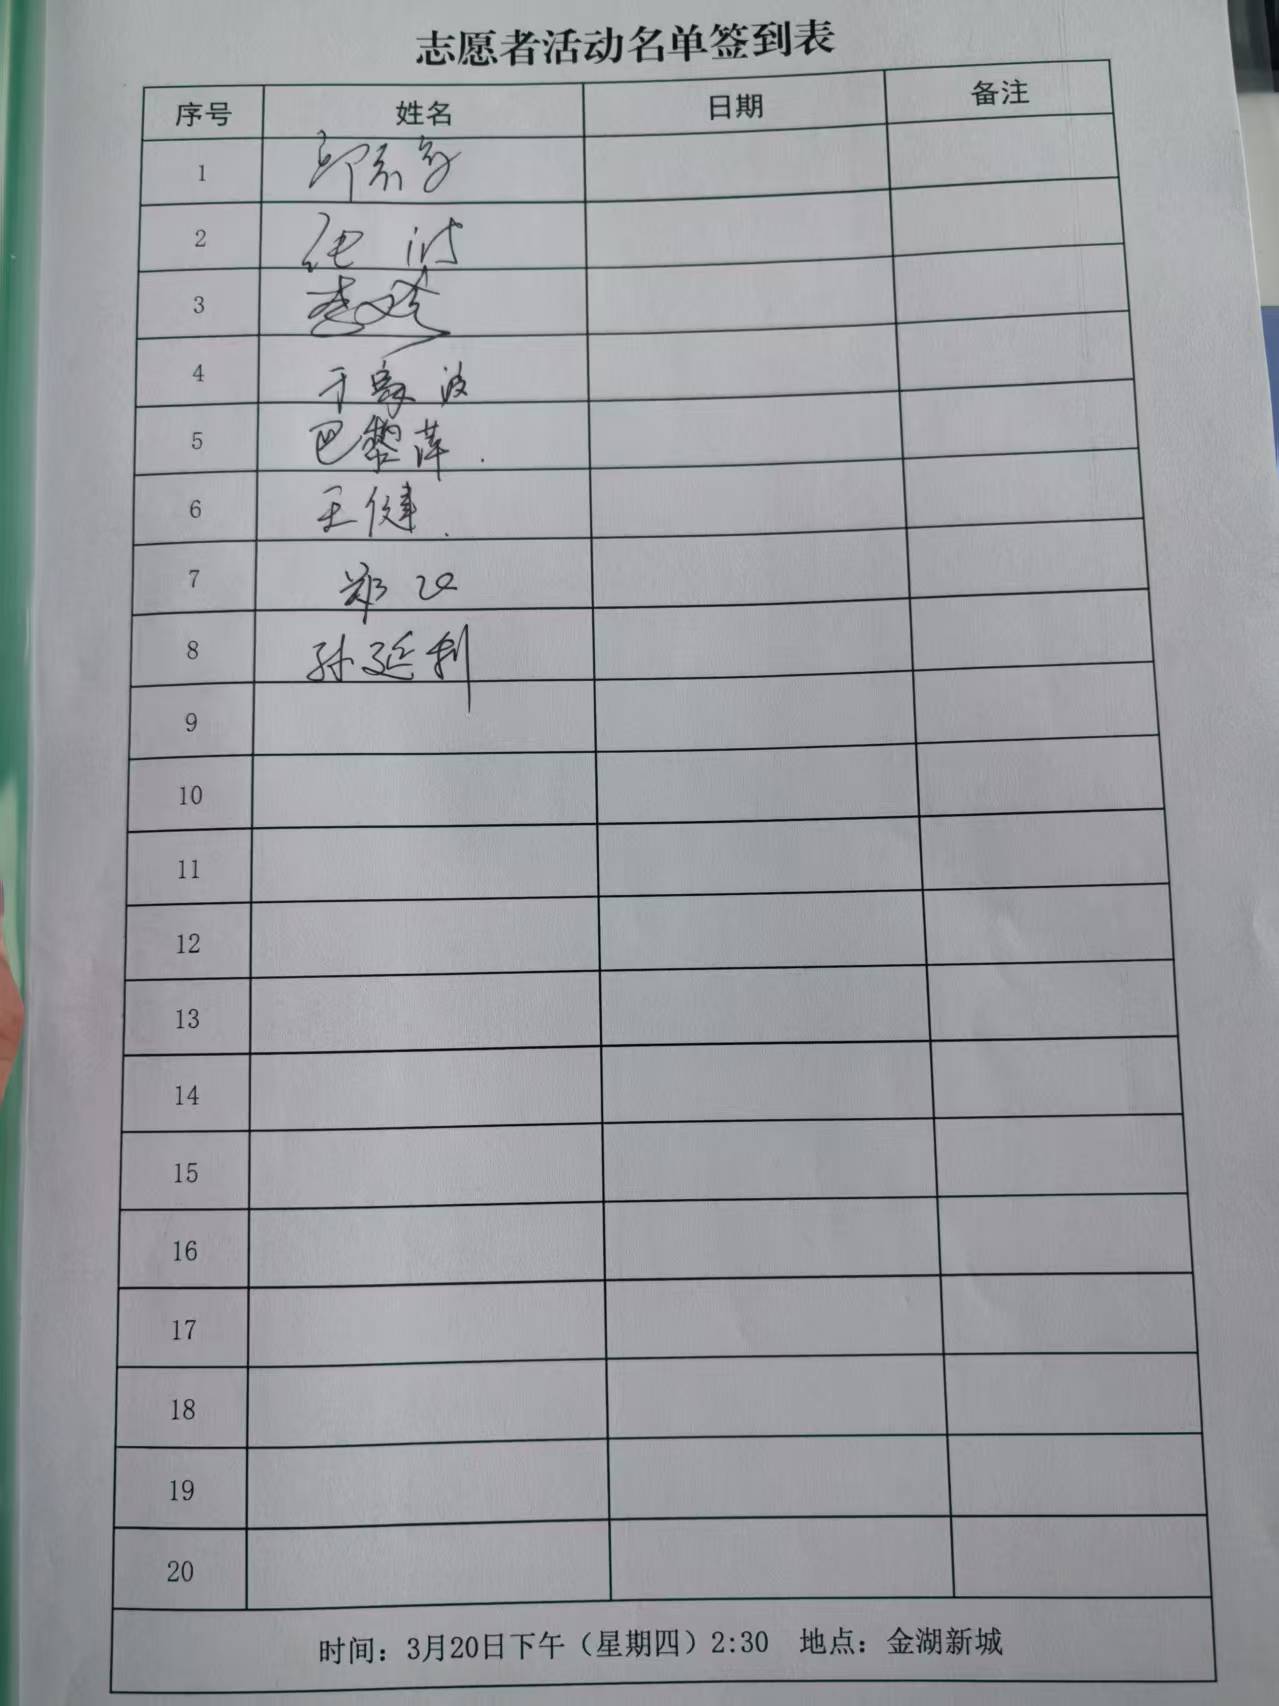 志愿者活动名单签到表
序号 姓名 日期 备注
1
2
3
4 于 波
5 巴黎萍.
6 王健.
7 郑
8 孙延利
9
10
11
12
13
14
15
16
17
18
19
20
时间：3月20日下午（星期四）2:30 地点：金湖新城